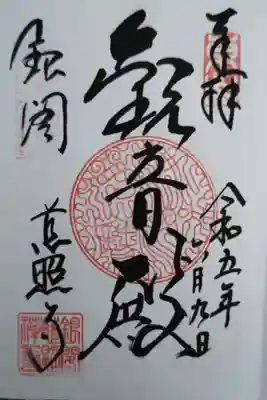 奉拝
令和五年
六月九日
観音殿
銀閣
慈照寺